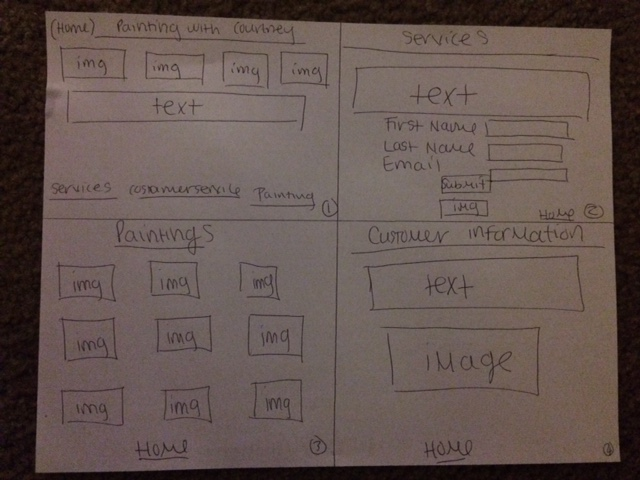 (Home) Painting with Courtney
img img img img
text
services costamerservice Painting
1
Services
text
First Name
Last Name
Email
Submit
img
Home 2
Paintings
img img img
img img img
img img img
Home 3
Customer information
text
image
Home 4